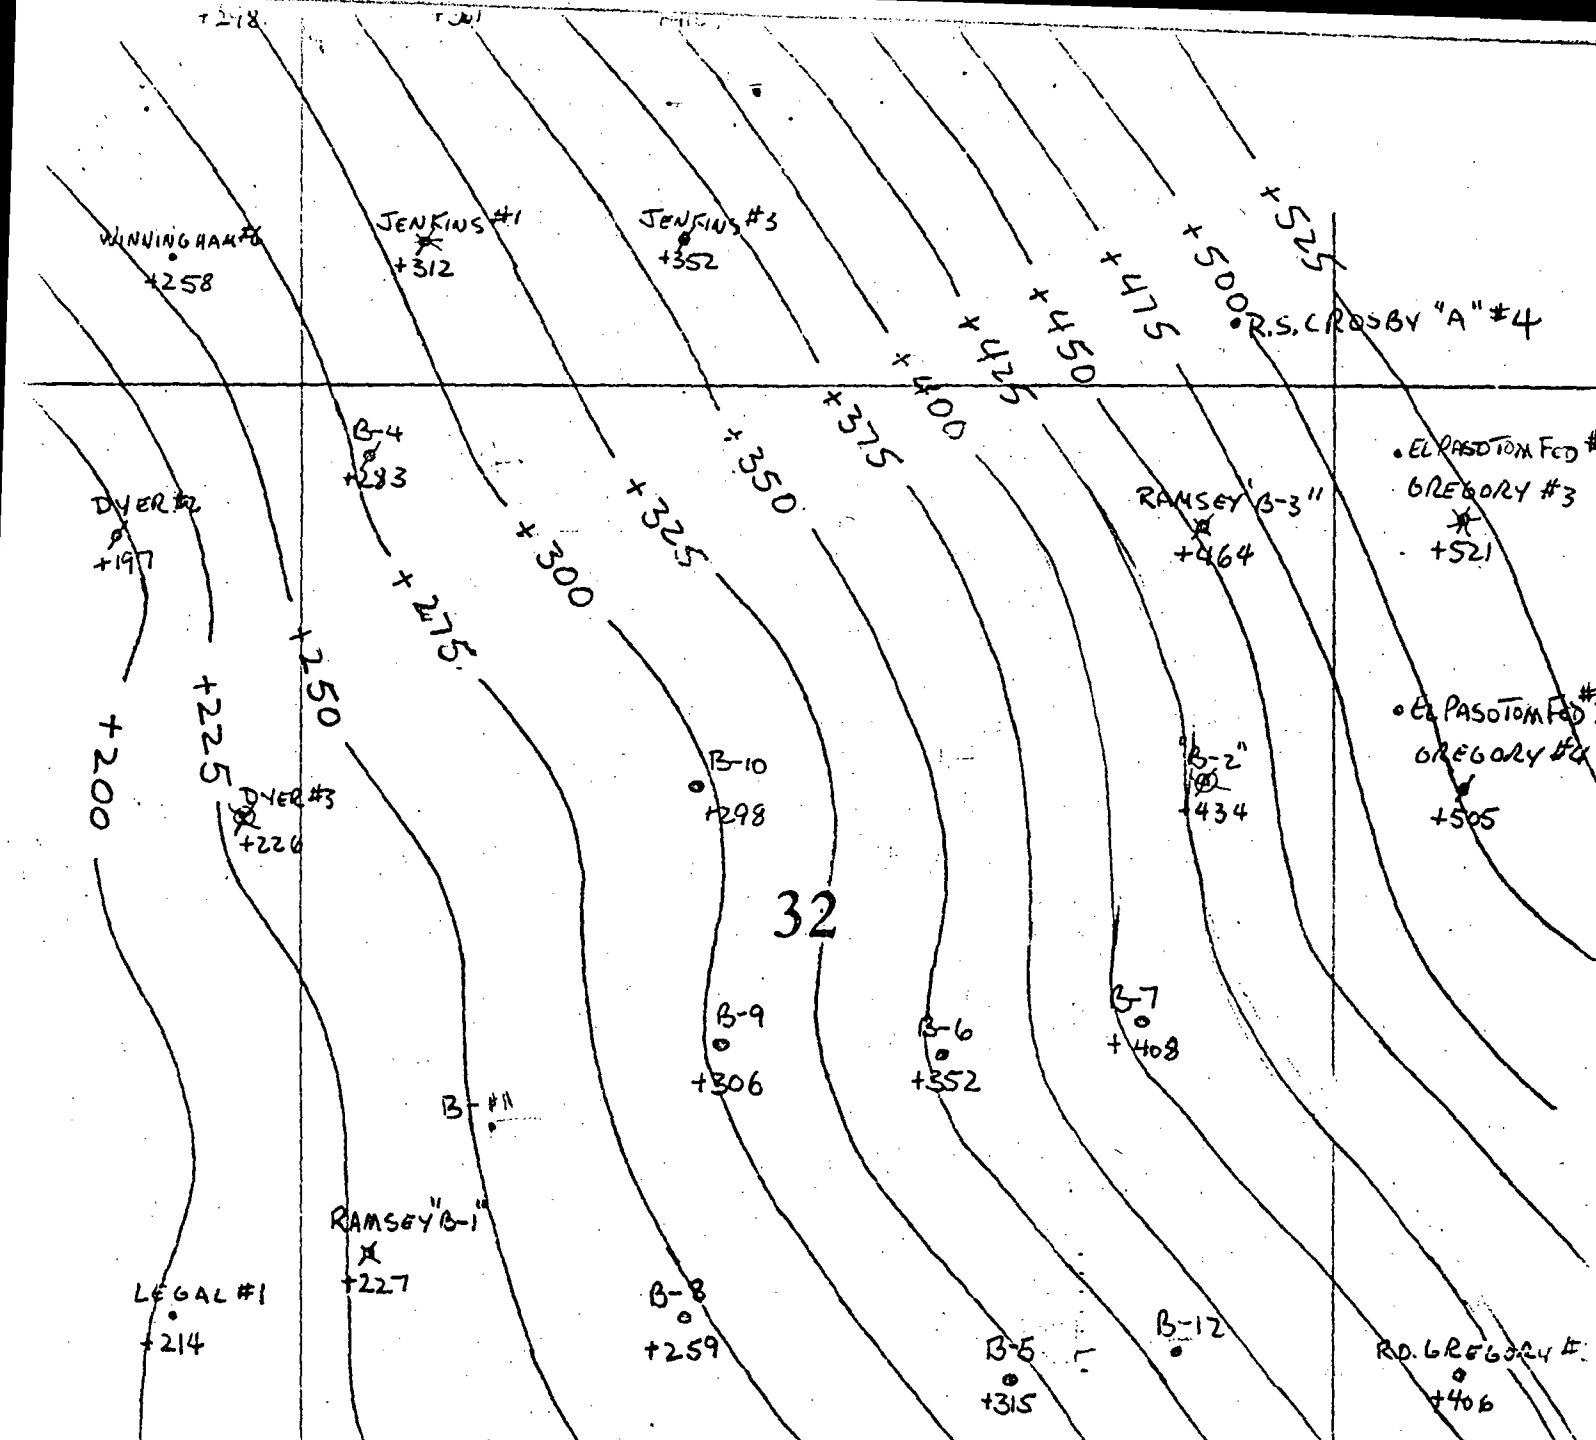 +278
JENKINS #1
+312
JENKINS #3
+352
WINNINGHAM #6
+258
+525
+500
+475
+450
+425
+400
+375
+350
+325
+300
+275
+250
+225
+200
R.S. CROSBY "A" #4
B-4
+283
EL PASO TOM FED #
GREGORY #3
+521
RAMSEY "B-3"
+464
DYER #2
+197
EL PASO TOM FED #
GREGORY #4
+505
"B-2"
+434
B-10
+298
DYER #3
+226
32
B-7
+408
B-9
+306
B-6
+352
B-#11
RAMSEY "B-1"
+227
LEGAL #1
+214
B-8
+259
B-5
+315
B-12
R.D. GREGORY #
+406